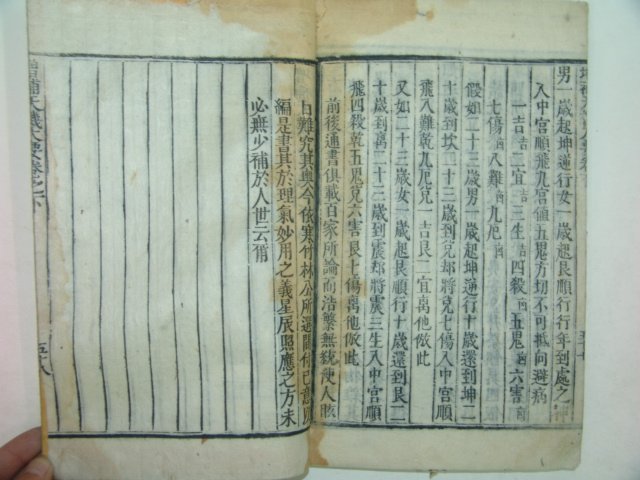 男一歲起坤逆行女一歲起艮順行行年到處之
入中宮順飛九宮値五鬼方切不可抵向避病
一吉 二宜 三生 四殺 五鬼 六害
七傷 八難 九厄
假如二十三歲男一歲起坤逆行十歲還到坤二
十歲到坎二十三歲到兌却將兌七傷入中宮順
飛八難乾九厄兌一吉艮二宜离他倣此
又如二十三歲女一歲起艮順行十歲還到艮二
十歲到离二十三歲到震却將震三生入中宮順
飛四殺乾五鬼兌六害艮七傷离他倣此
前後通書俱載百家所論而浩繁無統使人眩
目難究其奧今依寒竹林公所選間付己意
編是書其於理氣妙用之義星辰照應之方未
必無少補於人世云爾
增補天機大要卷之下
五八